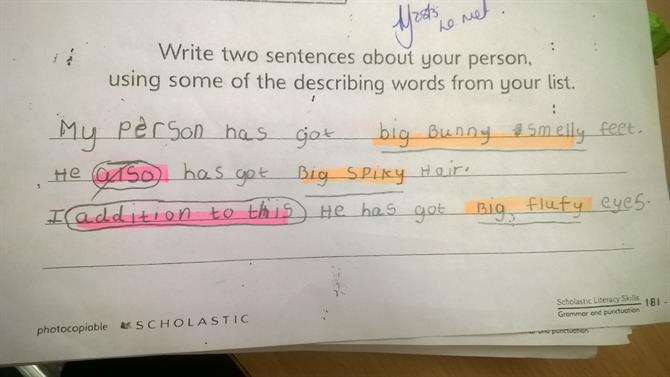 Write two sentences about your person,
using some of the describing words from your list.
My person has got big Bunny smelly feet.
He also has got Big SPiky Hair.
I addition to this He has got Big, flufy eyes.
photocopiable SCHOLASTIC
Scholastic Literacy Skills
Grammar and punctuation 181
and punctuation